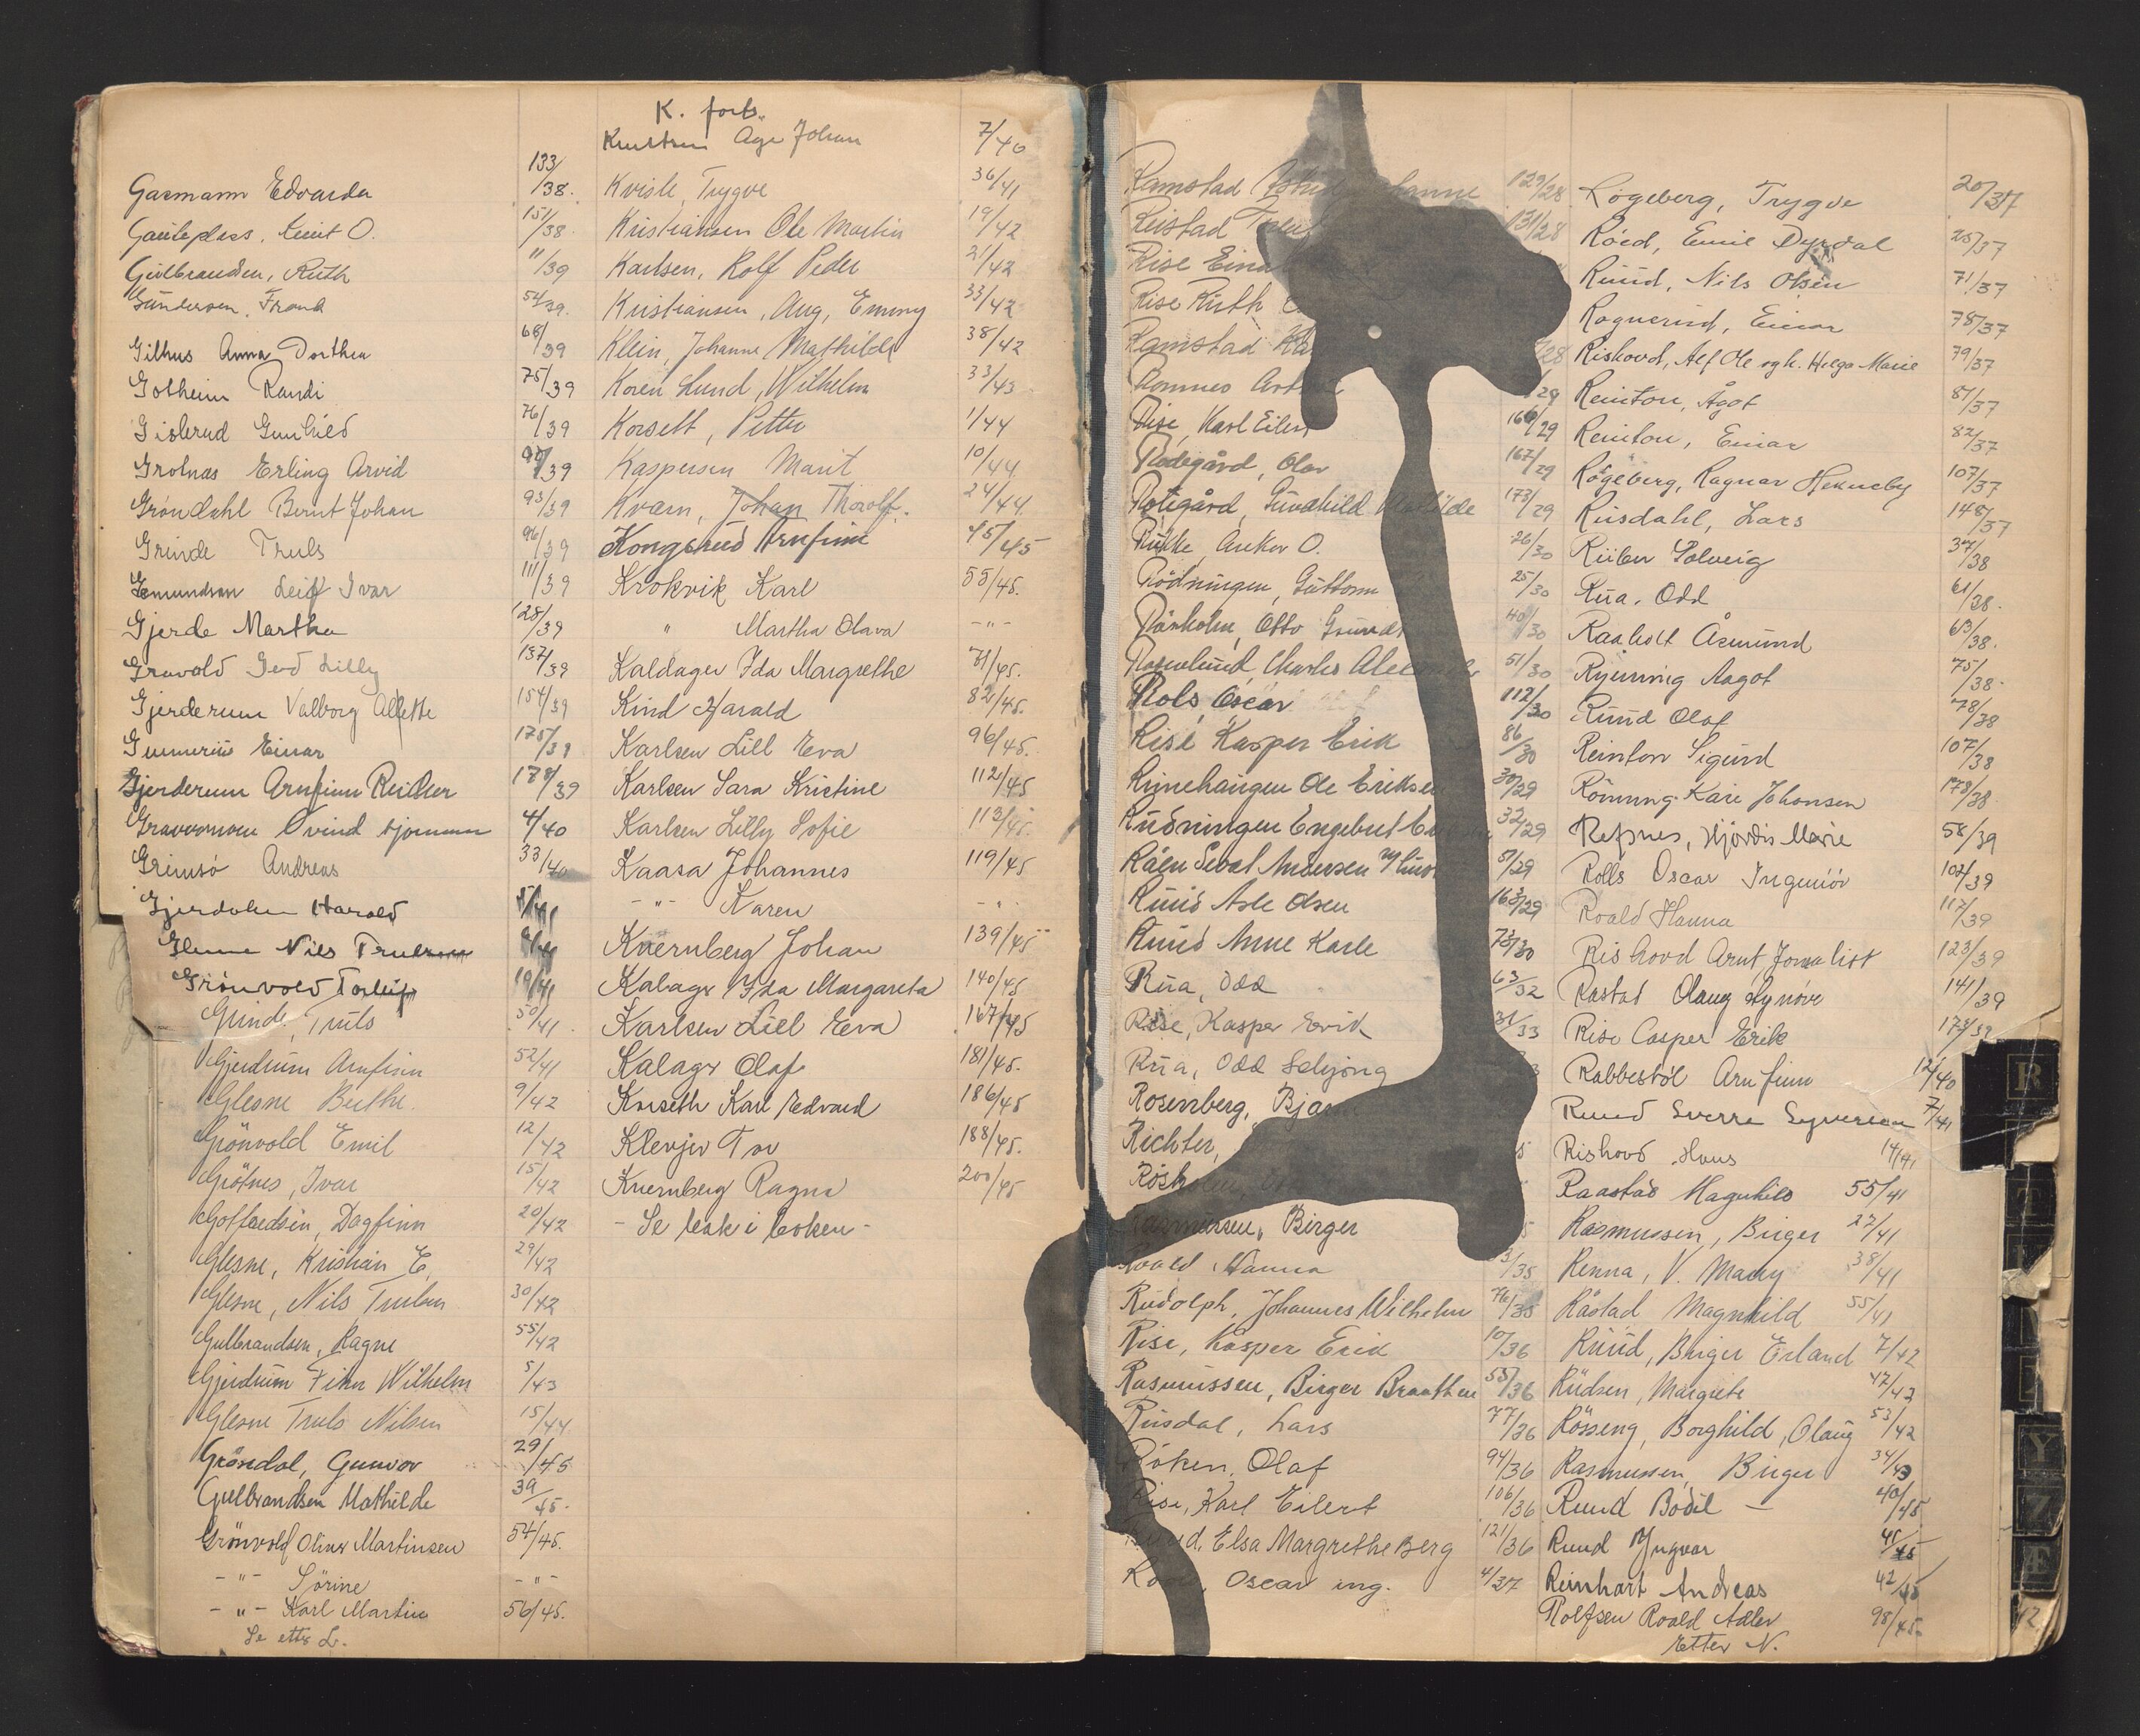 Garmann Edvarda 133/38.
Gauteplass, Knut O. 151/38
Gulbrandsen, Ruth 11/39
Gundersen, Frank 54/39.
Gilhus Anna Dorthea 68/39
Gotheim Randi 75/39
Gislerud Gunhild 76/39
Grotnas Erling Arvid /39
Gröndahl Bernt Johan 93/39
Grinde Truls 96/39
Gemundsen Leif Ivar 111/39
Gjerde Martha 128/39
Gravold Gerd Lilly 137/39
Gjerderum Valborg Alfette 154/39
Gunnerius Einar 175/39
Gjerderum Arnfinn Reidar 178/39
Øvind 4/40
Grimsö Andreas 33/40
Gjerdalen Harald
Glesne Nils
Grönvold Torleif 19/41
Grinde, Truls 50/41
Gjerdrum Arnfinn 52/41
Glesne Berthe. 9/42
Grönvold Emil 12/42
Grötnes, Ivar 15/42
Gotfredsen, Dagfinn 20/42
Glesne, Kristian E. 29/42
Glesne, Nils Trulsen 30/42
Gulbrandsen, Ragne 55/42
Gjerdrum Finn Wilhelm 5/43
Glesne Truls Nilsen 15/44
Gröndal, Gunvor 29/45
Gulbrandsen Mathilde 39/45.
Grönvold Oliver Martinsen 54/45.
-"- Sörine -"-
-"- Karl Martin 56/45.
Se etter L.
K. forts.
Knutsen Åge Johan 7/40
Kvisle, Trygve 36/41
Kristiansen Ole Martin 19/42
Karlsen, Rolf Peder 21/42
Kristiansen, Aug, Emmy 33/42
Klein, Johanne Mathilde 38/42
Koren Lund, Wilhelm 33/43
Korsett, Petter 1/44
Kaspersen Marit 10/44
Kværn, Johan Thorolf. 24/44
Kongsrud Arnfinn 45/45
Krokvik Karl 55/45.
" Martha Olava -"-
Kaldager Ida Margrethe 71/45.
Kind Harald 82/45.
Karlsen Lill Eva 96/45.
Karlsen Sara Kristine 112/45
Karlsen Lilly Sofie 113/45.
Kaasa Johannes 119/45
-"- Karen -"-
Kvernberg Johan 139/45
Kalager Ida Margareta 140/45
Karlsen Lill Eva 167/45
Kalager Olaf 181/45.
Korseth Karl Edvard 186/45
Klevjer Tor 188/45.
Kvernberg Ragna 200/45
- Se bak i boken -
Ramstad 129/28
131/28
Rise
Rise Ruth
Ramstad /28
Romnes /29
Rise, Karl Eilert 166/29
Rødegård, Olav 167/29
Rotegård, Gundhild 173/29
Anker O. 26/30
Rödningen, Guttorm 25/30
Otto 40/30
Rosenlund, Charles 51/30
Rols, Oscar 112/30
Rise Kasper Erik 86/30
Rimehaugen Ole Eriksen 30/29
Rudningen Engebret 32/29
Råen Sevat Andersen 51/29
Ruud Asle Olsen 163/29
Ruud Anne Karle 73/30
Rua, Odd 63/32
Rise, Kasper Erik 31/33
Rua, Odd Schjong
Rosenberg,
Richter,
Rasmussen, Birger
Roald Hanna /35
Rudolph, Johannes Wilhelm 76/35
Rise, Kasper Erik 10/36
Rasmussen, Birger Braathen 55/36
Rusdal, Lars 77/36
Röken, Olaf 94/36
Rise, Karl Eilert 106/36
Elsa Margrethe Berg 121/36
Oscar ing. 4/37
Rögeberg, Trygve 20/37
Röed, Emil Dyrdal 25/37
Ruud, Nils Olsen 71/37
Rognerud, Einar 78/37
Rishovd, Alf Ole og h. Helga Marie 79/37
Reinton, Ågot 81/37
Reinton, Einar 82/37
Rögeberg, Ragnar Henneby 107/37
Rusdahl, Lars 148/37
Solveig 37/38
Rua, Odd 61/38.
Raaholt Åsmund 63/38.
Ryenning Aagot 75/38.
Ruud Olaf 78/38
Reinton Sigurd 107/38
Rönning Kåre Johansen 178/38
Refsnes, Hjördis Marie 58/39
Rolls Oscar Ingeniör 102/39
Roald Hanna 117/39
Rishovd Arnt, Jornalist 123/39
Rastad Olaug Synöve 141/39
Rise Casper Erik 173/39
Rabbestöl Arnfinn 12/40
Ruud Sverre Syversen 7/41
Rishovd Hans 14/41
Raastad Magnhild 55/41
Rasmussen, Birger 27/41
Renna, V. Macry 38/41
Råstad Magnhild 55/41
Ruud, Birger Erland 7/42
Rudsen, Margrete 47/42
Rösseng, Borghild, Olaug 53/42
Rasmussen, Birger 34/43
Ruud Bodil - 40/45
Ruud Yngvar 41/45
Reinhart Andreas 42/45
Rolfsen Roald Adler 98/45.
Etter N.
R
T
Y
Z
Æ